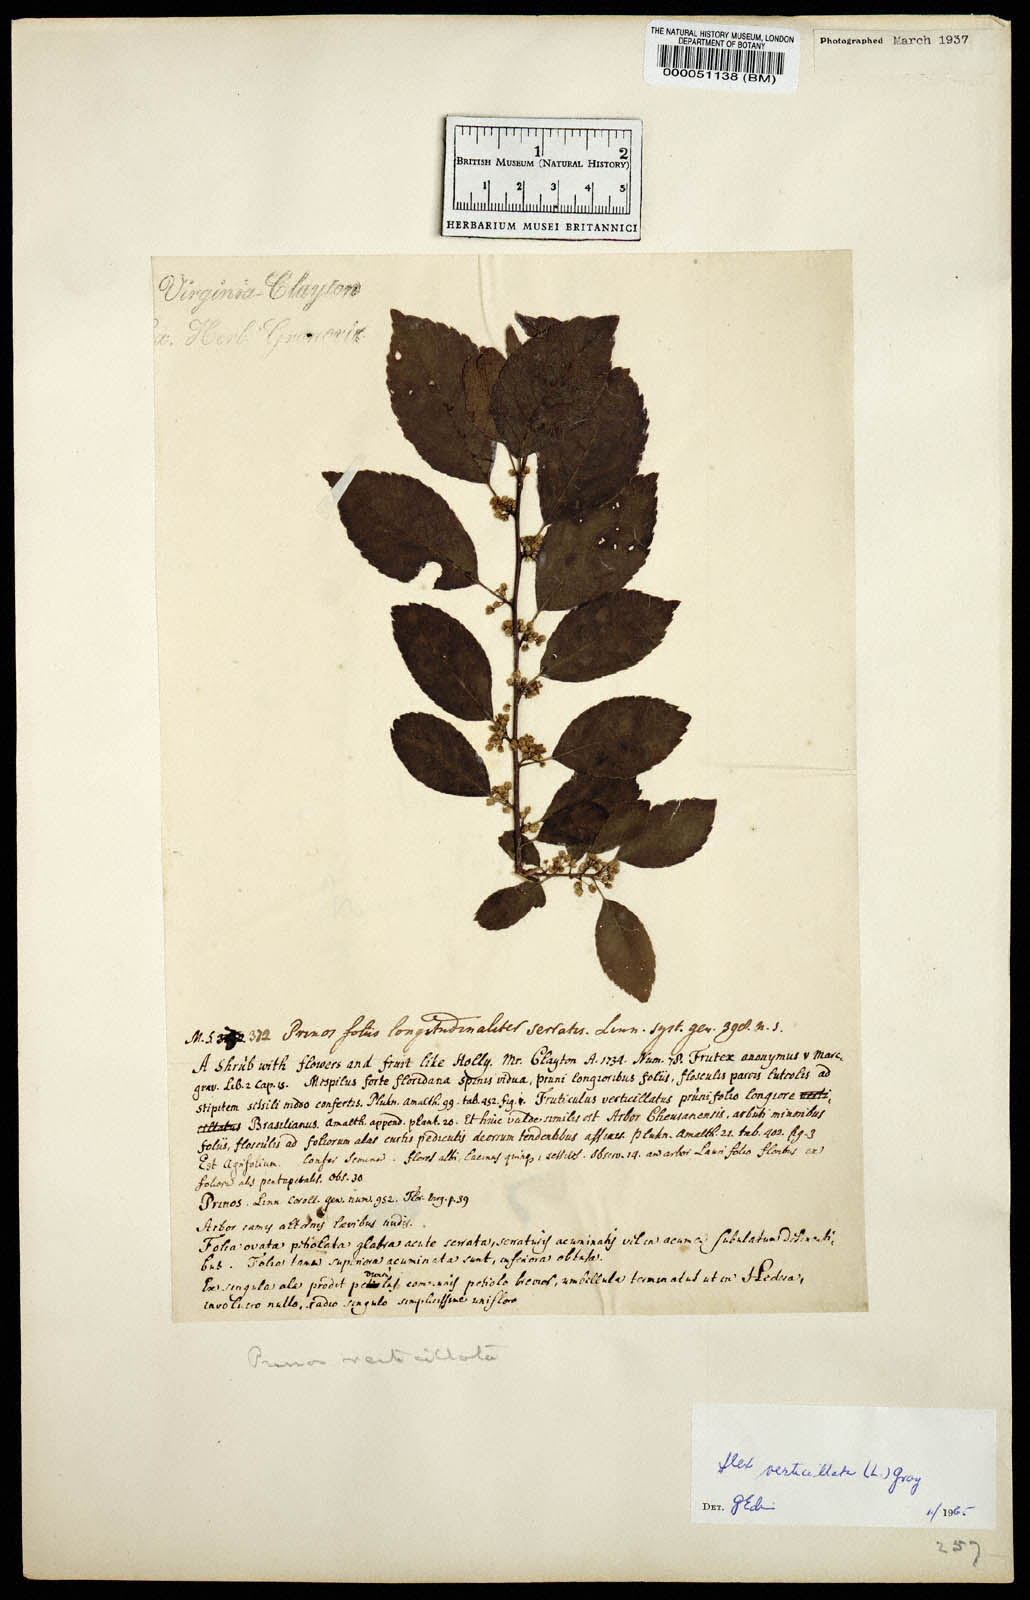 THE NATURAL HISTORY MUSEUM, LONDON
DEPARTMENT OF BOTANY
000051138 (BM)
Photographed March 1937
1 2
BRITISH MUSEUM (NATURAL HISTORY)
1 2 3 4 5
HERBARIUM MUSEI BRITANNICI
Virginia-Clayton
Herb. Gronovii
372 Prinos foliis longitudinaliter serratis. Linn. syst. gen. n. 1.
A Shrub with flowers and fruit like Holly. Mr. Clayton A. 1734. Num. 78. Frutex anonymus v Marc
grav. Lib. 2 Cap. 15. Mespilus forte floridana spinis vidua, pruni longioribus foliis, flosculis parvis luteolis ad
stipitem sessili modo confertis. Plukn. Amalth. 99. tab. 452. fig. Fruticulus verticillatus prunifolio longiore
Brasilianus. Amalth. append. plant. 20. Et huic valde similis est Arbor Cheusanensis, arbuti minoribus
foliis, flosculis ad foliorum alas curtis pediculis deorsum tendentibus Plukn. Amalth. 21. tab. 402. fig. 3
Est Agrifolium. flores albi, sessiles. Observ. 14. an arbor Lauri folio floribus ex
foliorum alis pentapetalis. Obs. 30
Prinos. Linn. Coroll. gen. num. 952. Flor. Virg. p. 39
Arbor ramis alternis laevibus nudis.
Folia ovata petiolata glabra acute serrata, serraturis acuminatis vel in acumen subulatum
bus. Folia tamen superiora acuminata sunt, inferiora obtusa.
Ex singula ala prodit communis petiolo brevior, umbellula terminatus ut in Hedera,
involucro nullo, radio singulo simplicissime unifloro
Prinos verticillata
Ilex verticillata (L.) Gray
DET.
1965
257